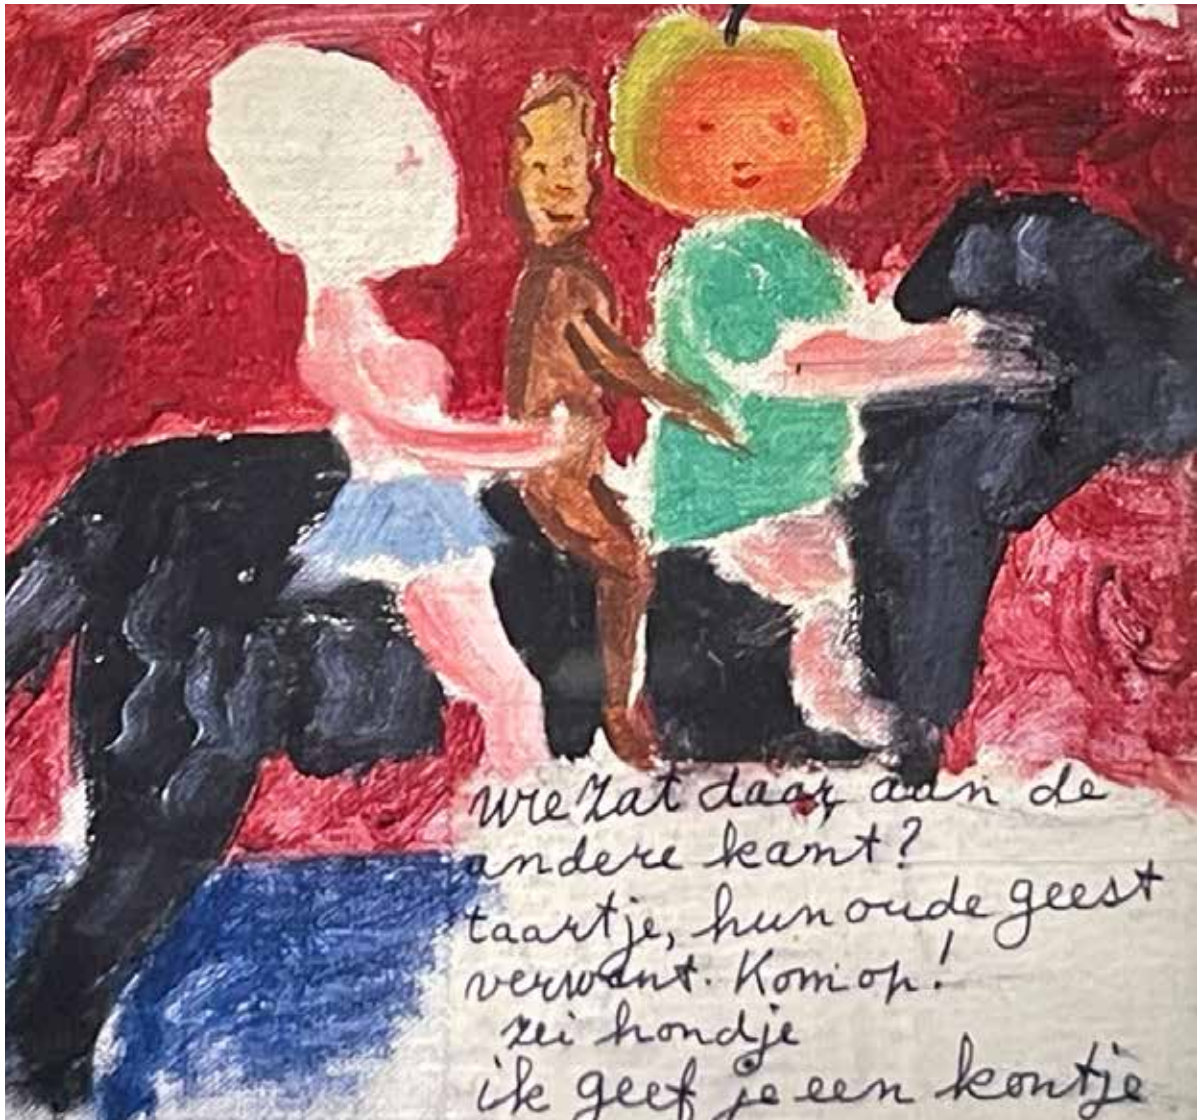 wie zat daar aan de
andere kant?
taartje, hun oude geest
verwant. Kom op!
zei hondje
ik geef je een kontje